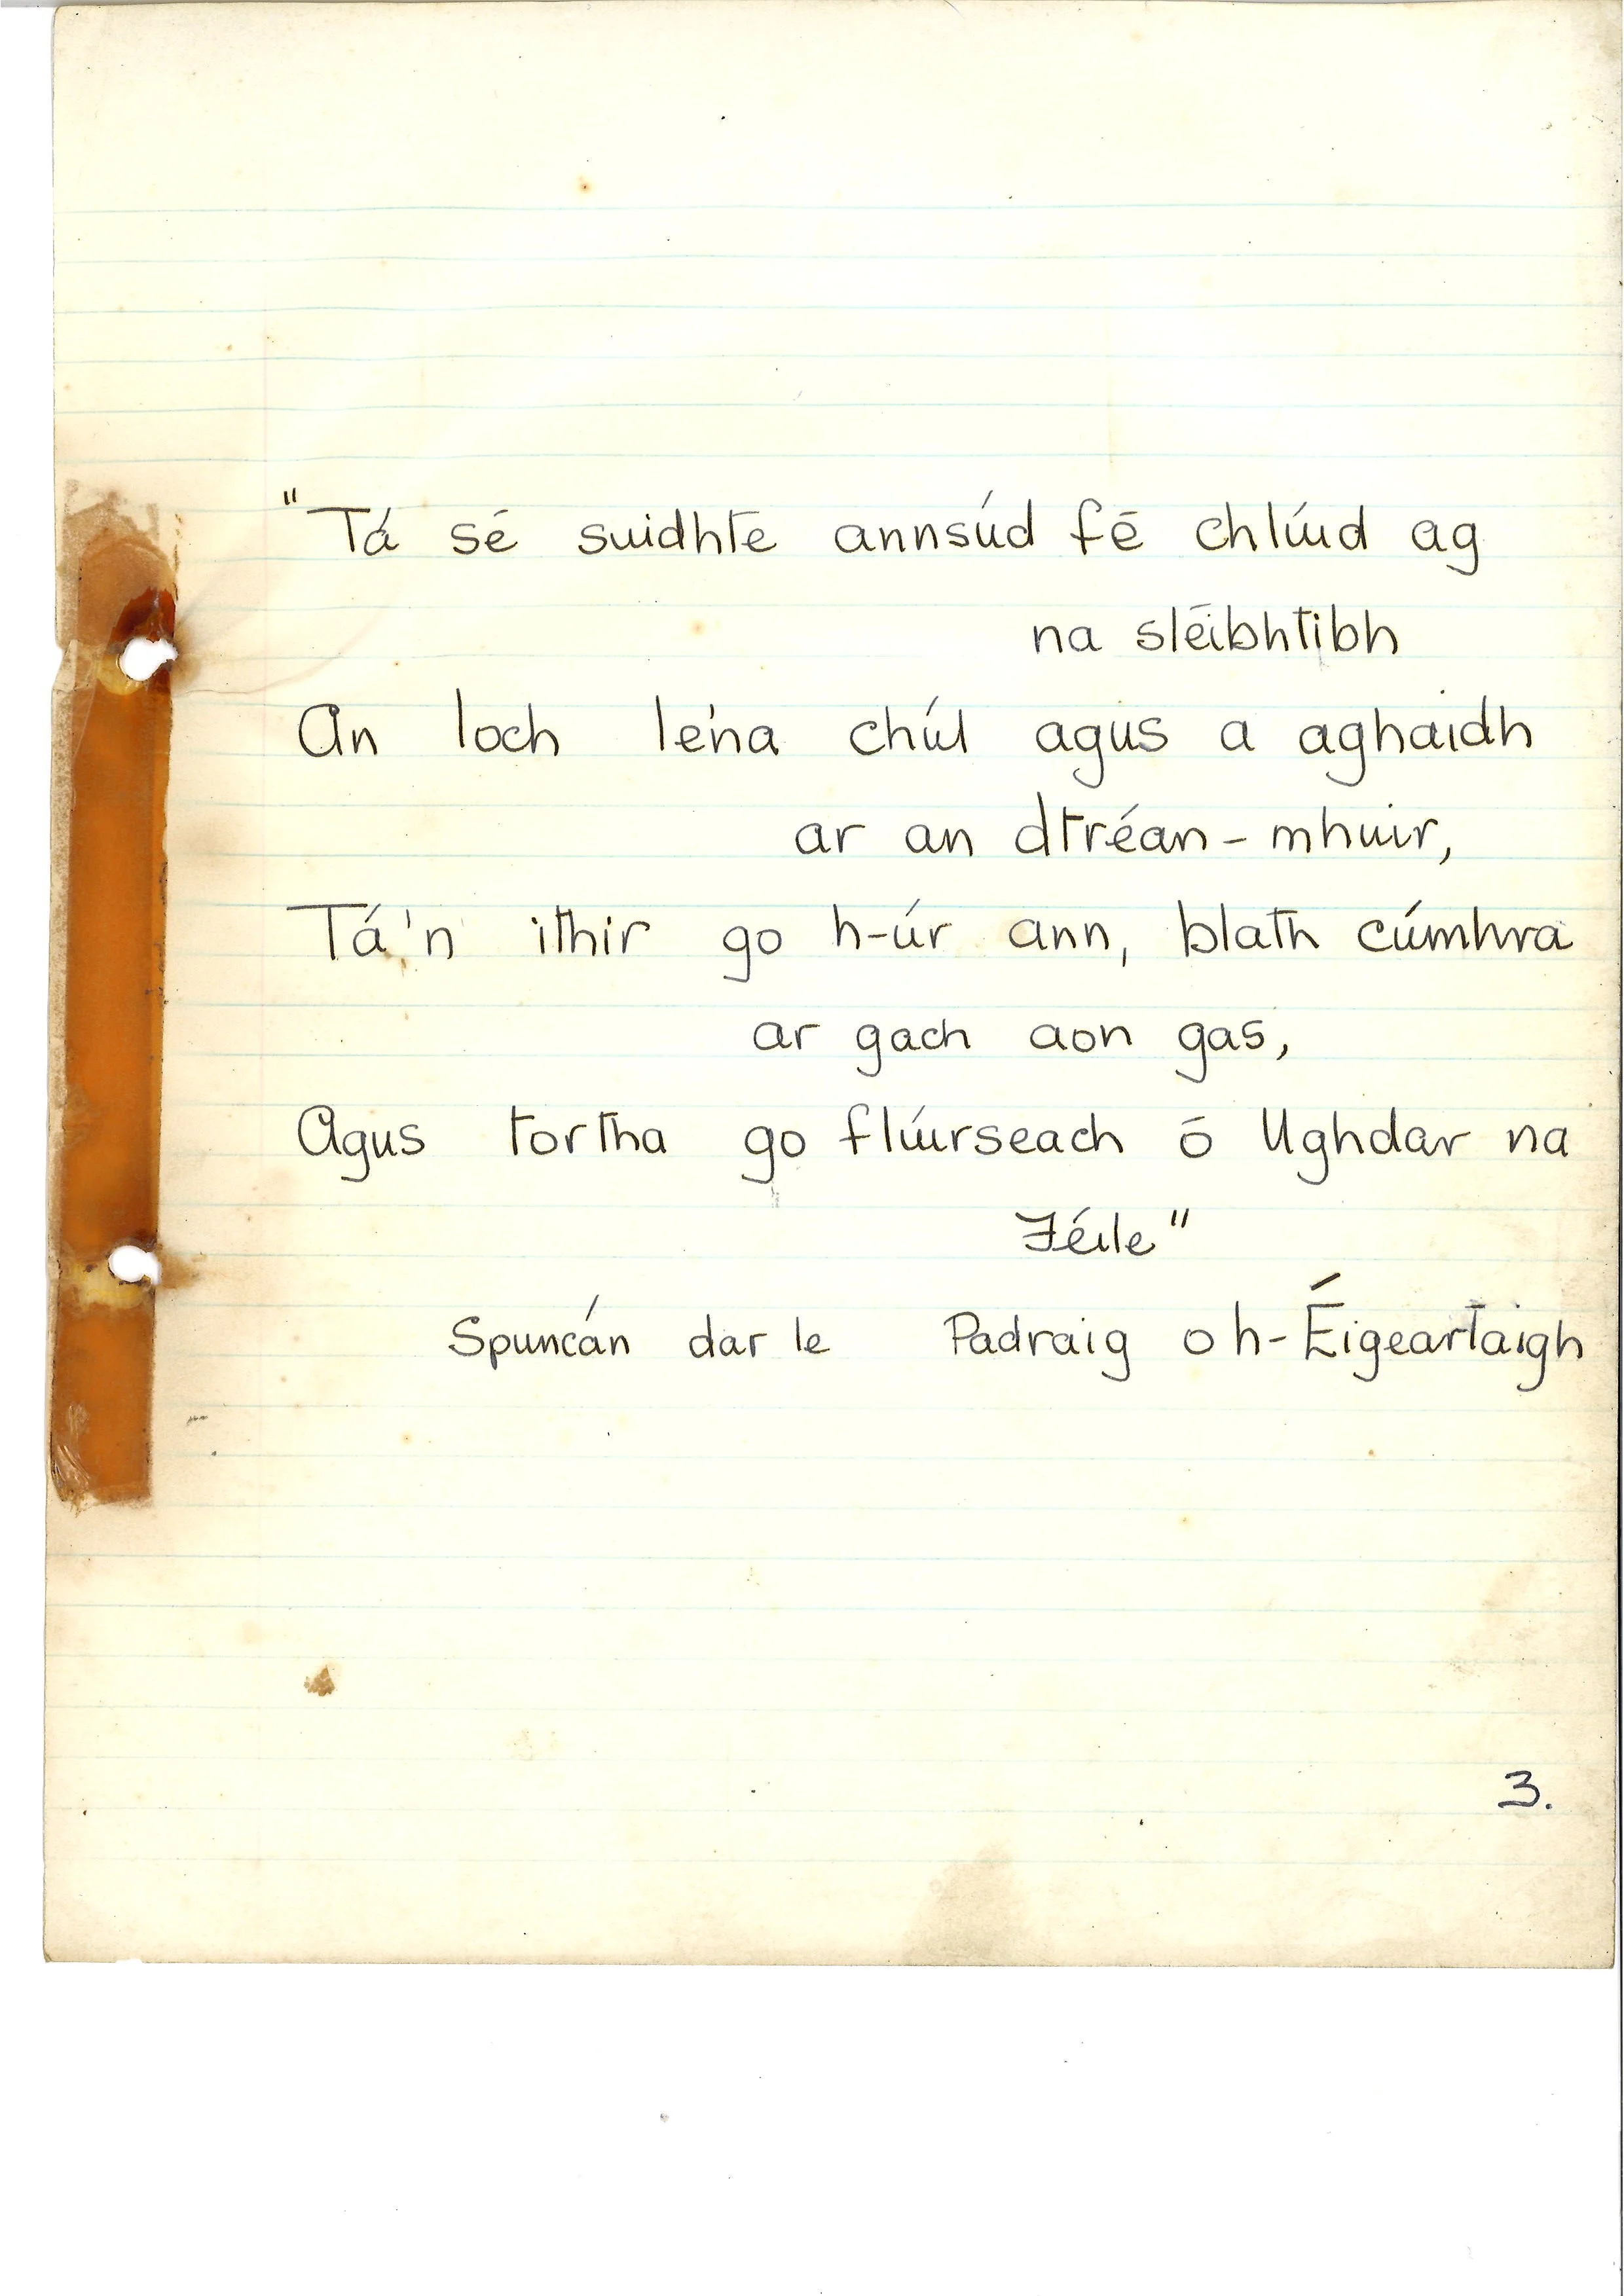 "Tá sé suidhte annsúd fé chlúid ag
na sléibhtibh
An loch le'na chúl agus a aghaidh
ar an dtréan-mhuir,
Tá'n ithir go h-úr ann, blath cúmhra
ar gach aon gas,
Agus tortha go flúirseach ó Ughdar na
Féile"
Spuncán dar le Padraig o h-Éigeartaigh
3.